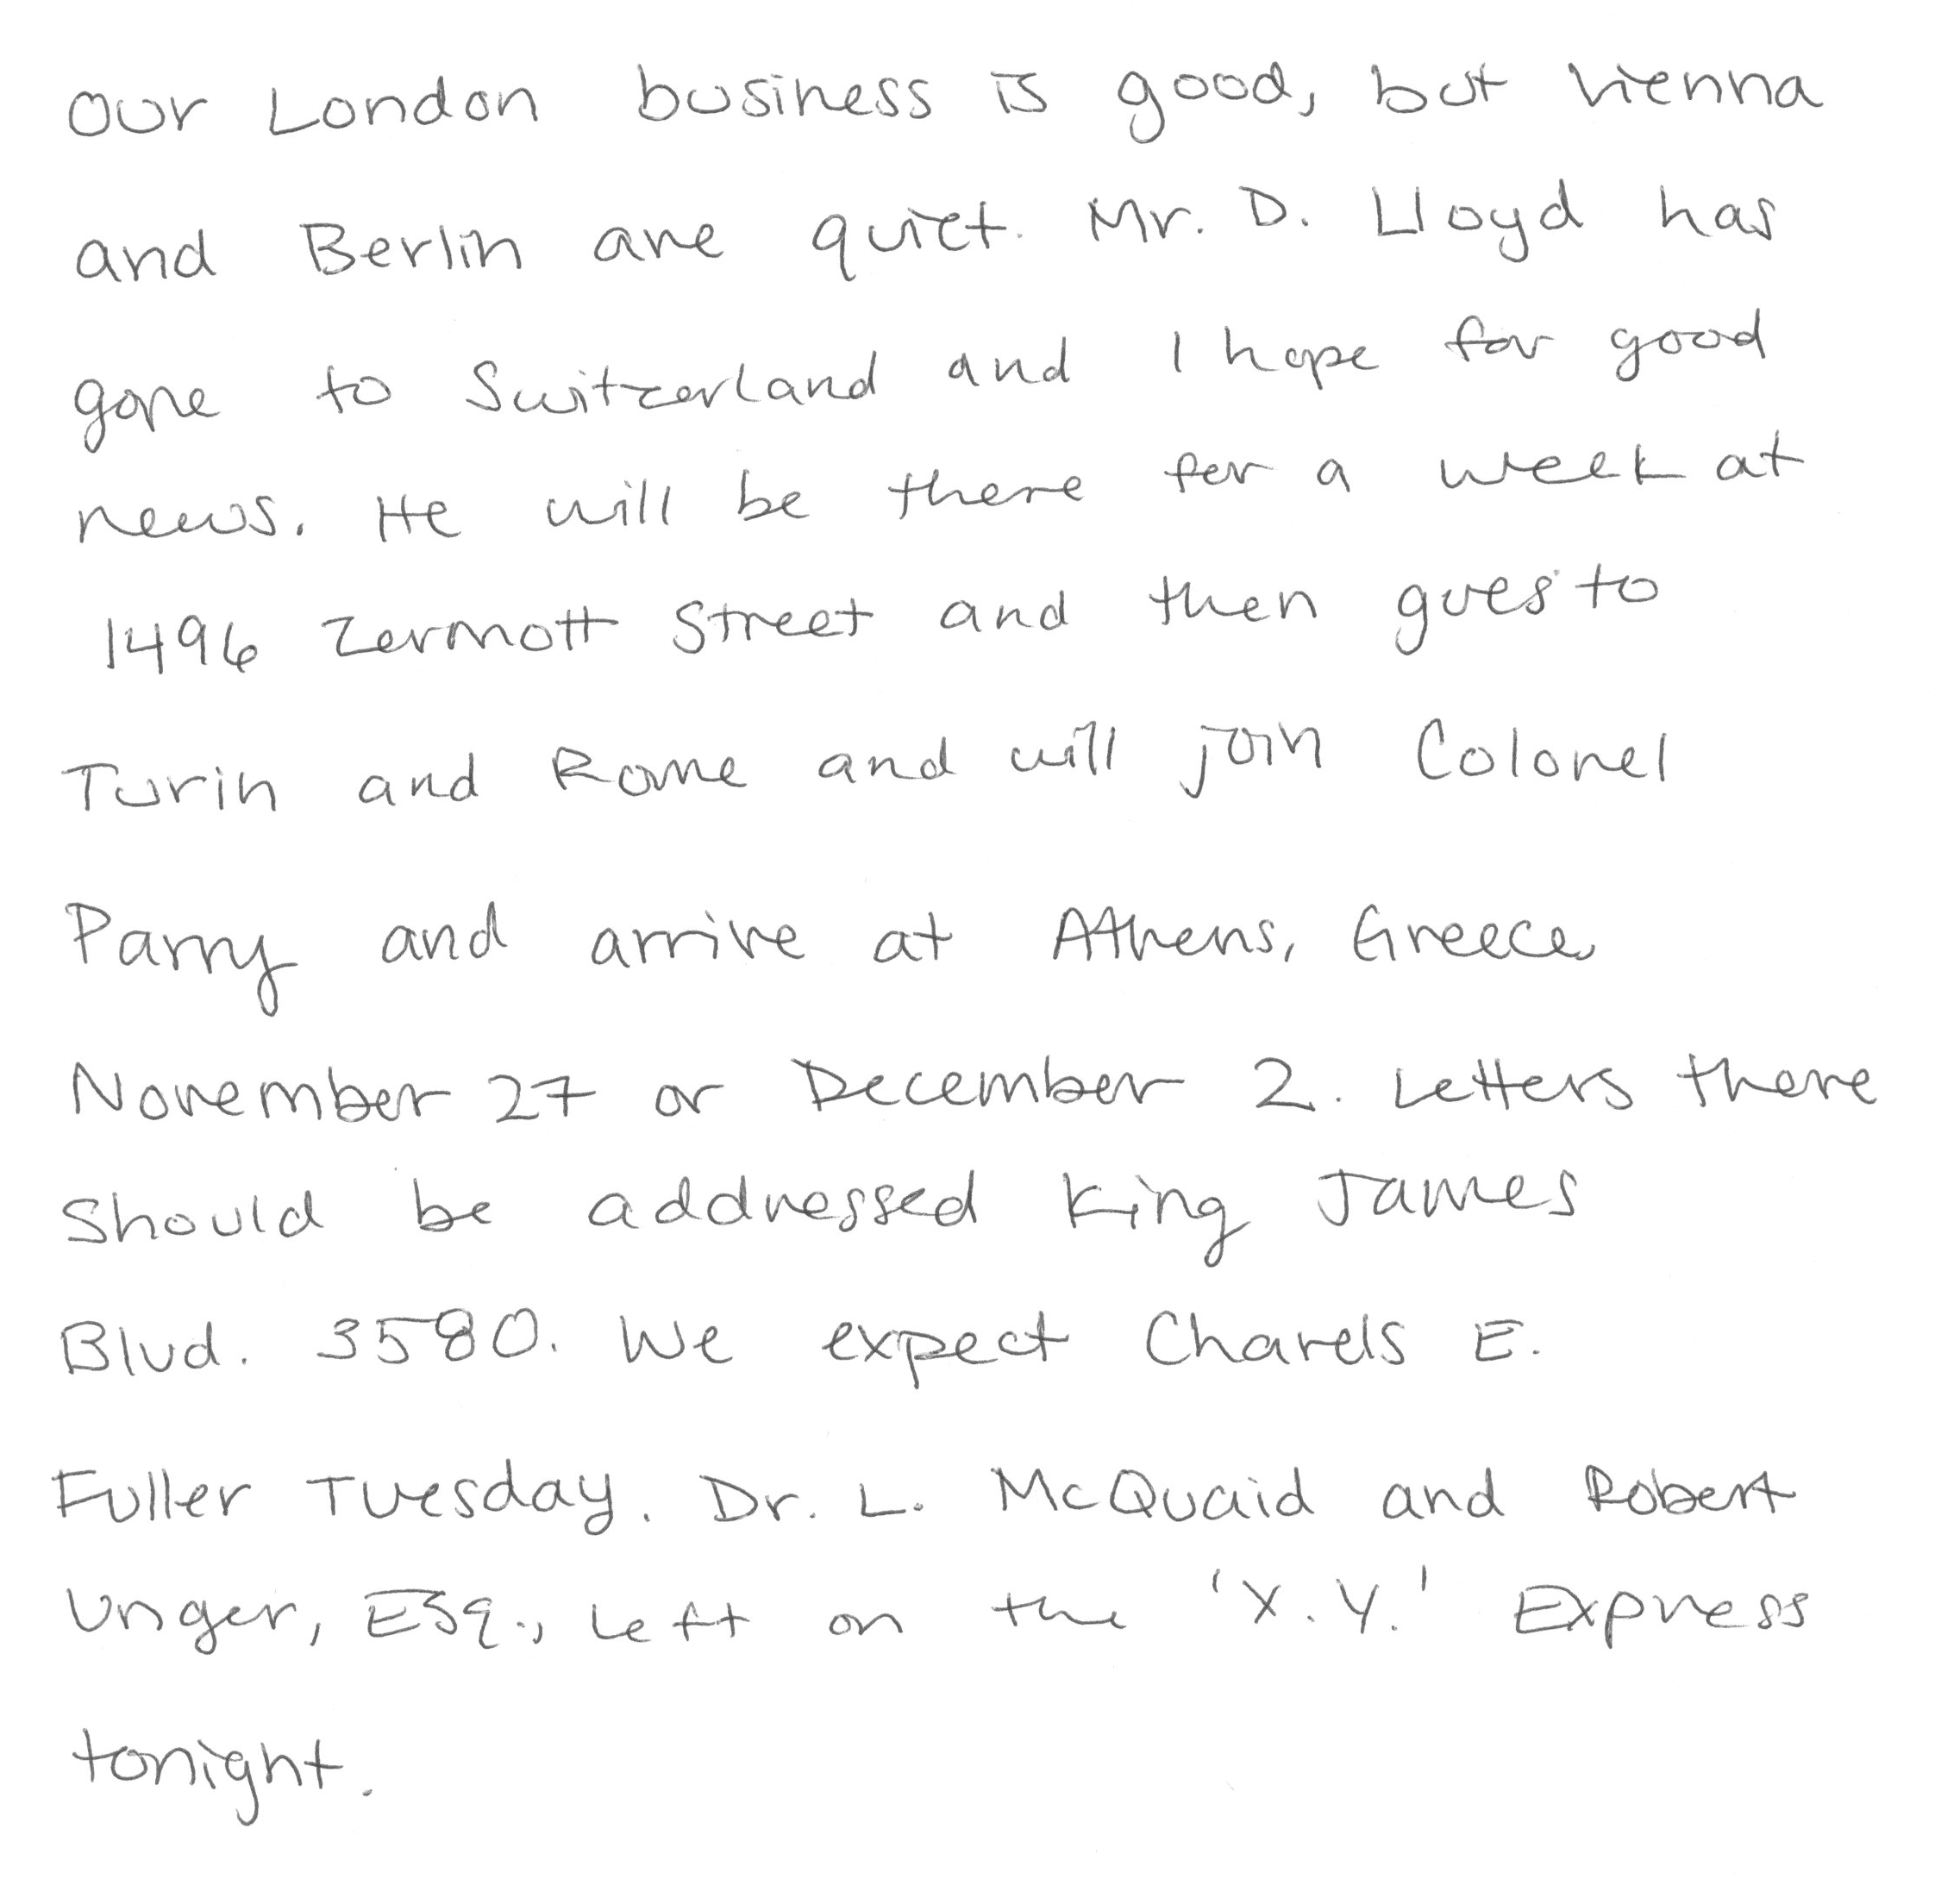 Our London business is good, but Vienna
and Berlin are quiet. Mr. D. Lloyd has
gone to Switzerland and I hope for good
news. He will be there for a week at
1496 Zermott Street and then goes to
Turin and Rome and will join Colonel
Parry and arrive at Athens, Greece,
November 27 or December 2. Letters there
should be addressed King James
Blvd. 3580. We expect Charels E.
Fuller Tuesday. Dr. L. McQuaid and Robert
Unger, Esq., left on the 'X.Y.' Express
tonight.